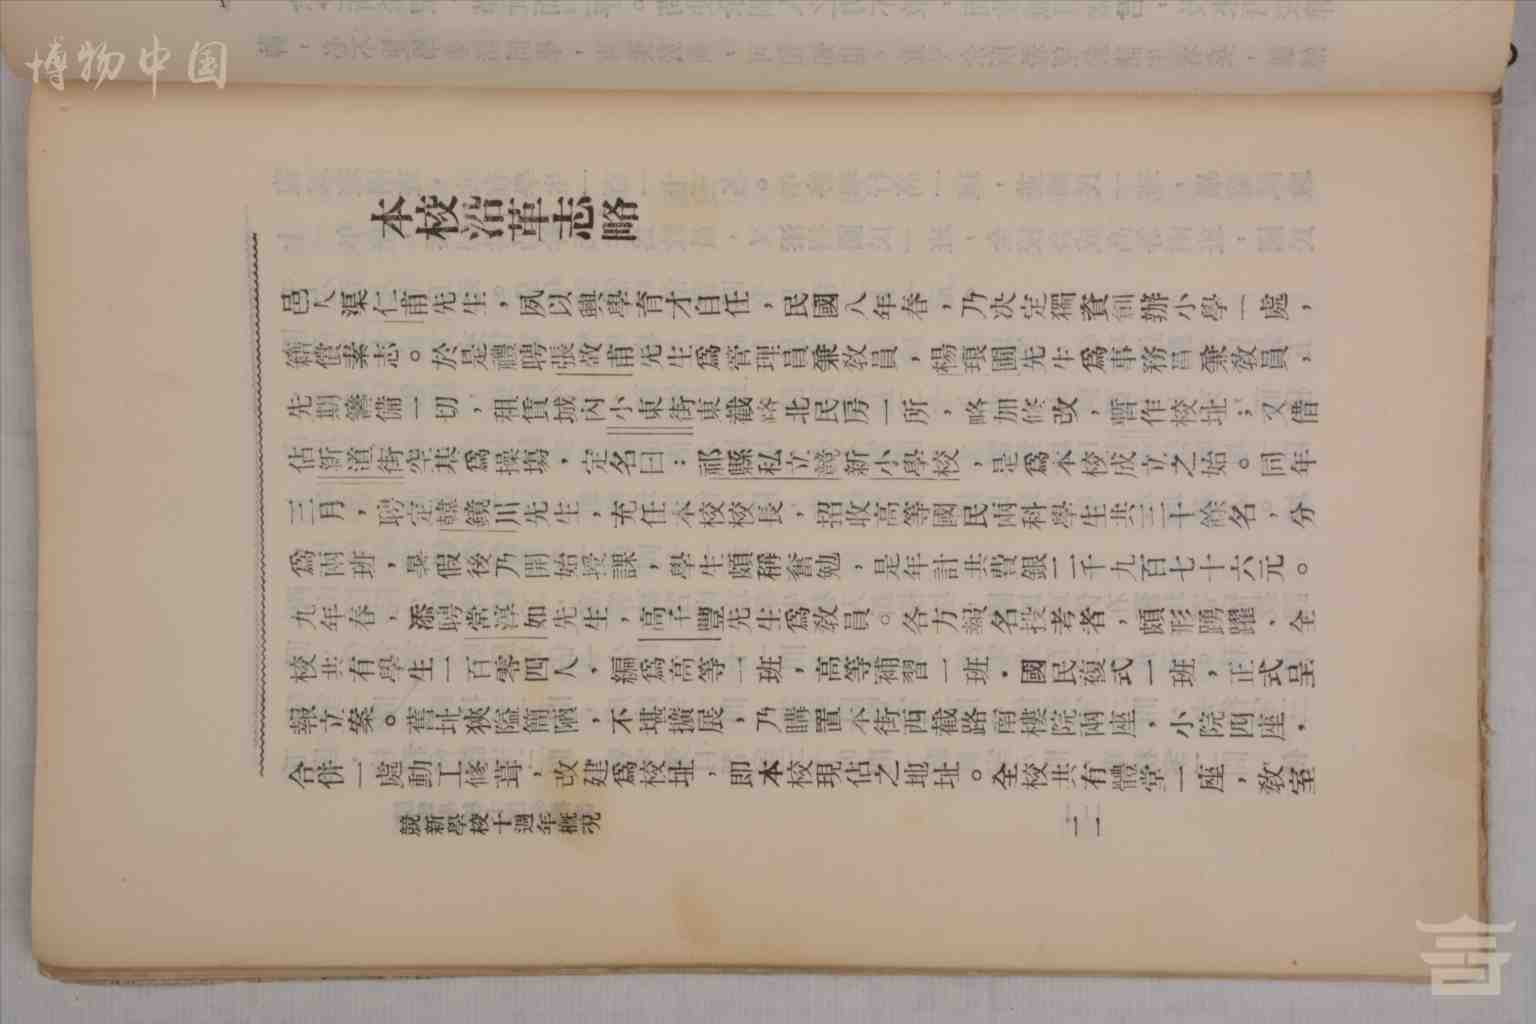 博物中国
本校沿革志略
邑人渠仁甫先生，夙以興學育才自任，民國八年春，乃決定獨資創辦小學一處，
籍償素志。於是禮聘張敬甫先生爲管理員兼教員，楊琅圃先生爲事務員兼教員，
先期籌備一切，租賃城內小東街東截路北民房一所，略加修改，暫作校址；又借
佔新道街空基爲操塲，定名曰：祁縣私立競新小學校，是爲本校成立之始。同年
三月，聘定韓鏡川先生，充任本校校長，招收高等國民兩科學生共三十餘名，分
爲兩班，暑假後乃開始授課，學生頗稱奮勉，是年計共費銀二千九百七十六元。
九年春，添聘常淳如先生，高千豐先生爲教員。各方報名投考者，頗形踴躍、全
校共有學生一百零四人，編爲高等一班，高等補習一班，國民複式一班，正式呈
報立案。舊址狹隘簡陋，不堪擴展，乃購置本街西截路南樓院兩座，小院四座，
合併一處動工修葺，改建爲校址，即本校現佔之地址。全校共有體堂一座，教室
競新學校十週年概況
二